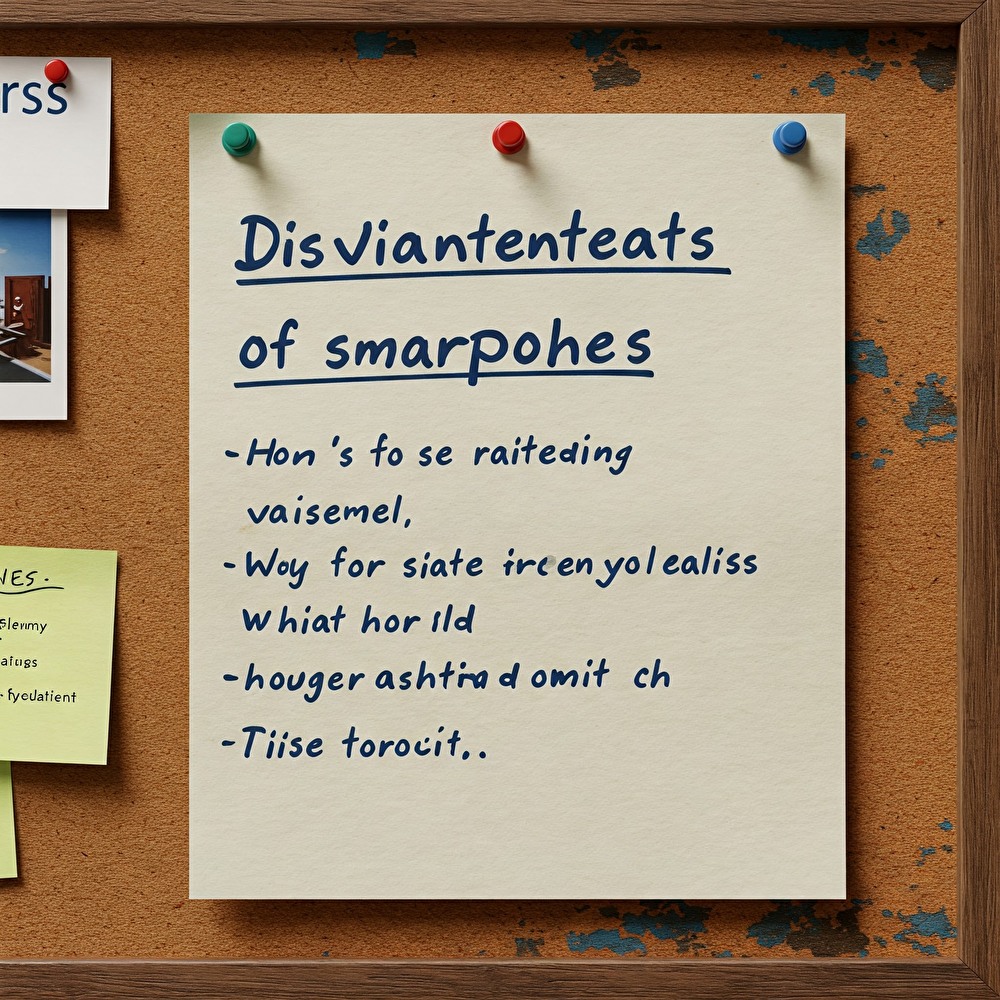 rss
Disviantenteats
of smarpohes
-Hon 's fo se raiteding
vaisemel,
-Woy for siate ircenyolealiss
Whiat hor ild
-houger ashtira d omit ch
-Tiise torocit,.
VES.
Slemmy
afugs
- fyodatient